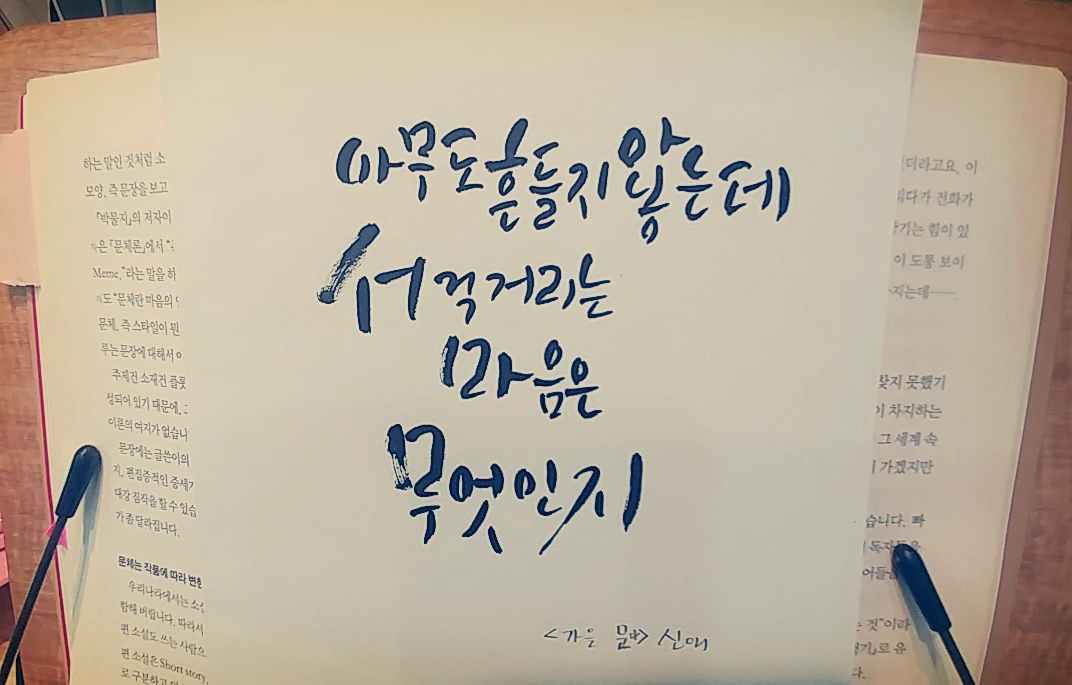 아무도 흔들지 않는데
서걱거리는
마음은
무엇인지
<가을 문> 신애
하는 말인 것처럼 소
모양, 즉 문장을 보고
『박물지』의 저자이
은 「문체론」에서 “
Meme,”라는 말을 하
도 “문체란 마음의
문체, 즉 스타일이 뭔
루는 문장에 대해서
주제건 소재건 플롯
성되어 있기 때문에,
이론의 여지가 없습니
문장에는 글쓴이의
지, 편집증적인 증세
대강 짐작을 할 수 있습
가 좀 달라집니다.
문체는 작품에 따라 변한
우리나라에서는 소
합해 버립니다. 따라서
편 소설도 쓰는 사람으
편 소설은 Short story,
로 구분하고
더라고요. 이
리다가 전화가
기는 힘이 있
이 도통 보이
지는데──.
찾지 못했기
이 차지하는
그 세계 속
가겠지만
습니다. 빠
독자들을
어들
는 것”이라
기』로 유
다.